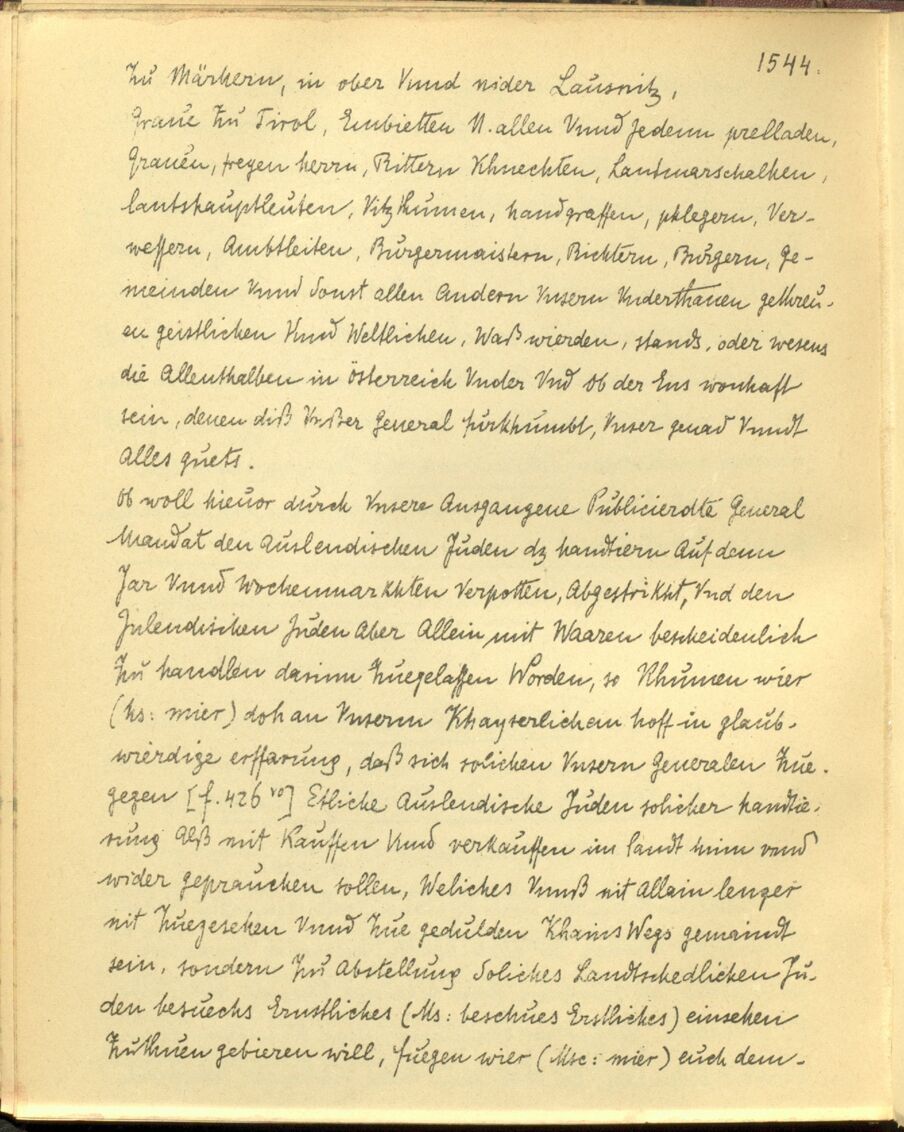 1544.
Zu Märhern, in ober Vnnd nider Lausnitz,
Graue Zu Tirol, Embietten N. allen Vnnd Jedenn prelladen,
Grauen, freyen herrn, Rittern Khnechten, Landmarschalhen,
lantshauptleuten, Vitzthumen, handgraffen, phlegern, Ver-
wessern, Ambtleiten, Burgermaistern, Richtern, Burgern, Ge-
meinden Vnnd Sonst allen Andern Vnsern Vnderthanen gethreu-
en geistlichen Vnnd Weltlichen, Waß wierden, stands, oder wesens
die Allenthalben in österreich Vnder Vnd Ob der Ens wonhaft
sein, denen diß Vnßer General fürkhumbt, Vnser genad Vnndt
Alles guets.
Ob woll hieuor durch Vnsere Ausgangene Publicierdte General
Mandat den Auslendischen Juden dz handtiern Auf denn
Jar Vnnd Wochenmarkhten Verpotten, Abgestrikht, Vnd den
Inlendischen Juden Aber Allein mit Waaren bescheidenlich
Zu handlen darinn Zuegelassen Worden, so Khumen wier
(hs: mier) doh an Vnserm Khayserlichen hoff in glaub-
wierdige erffarung, daß sich solichen Vnsern Generalen Zue-
gegen [f. 426 vo] Etliche Auslendische Juden solicher handtie-
rung Alß mit Kauffen Vnnd verkauffen im Landt hinn vnnd
wider geprauchen sollen, Weliches Vnnß nit Allain lenger
nit Zuegesehen Vnnd Zue gedulden Khains Wegs gemaindt
sein, sondern Zu Abstellung Soliches Landtschedlichen Ju-
den besuechs Ernstliches (Ms: beschues Erstliches) einsehen
Zuthuen gebieren will, fuegen wier (Msc: mier) euch dem-